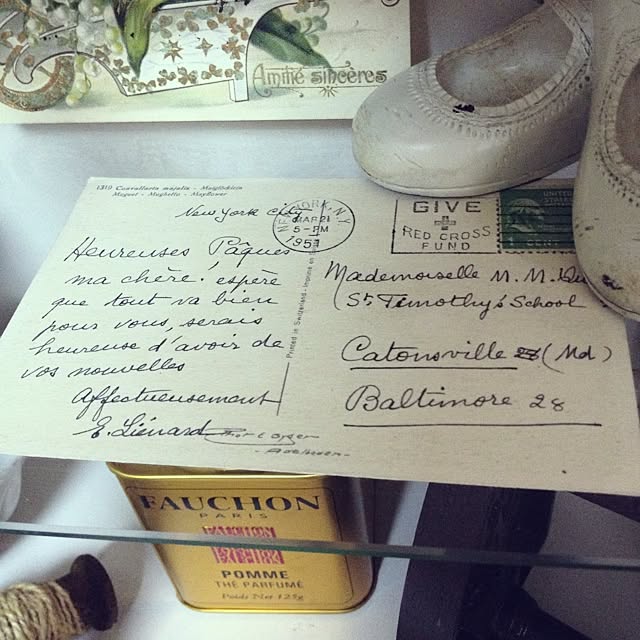 Amitié sincères
1319 Convallaria majalis - Maiglöckchen
Muguet - Mughetto - Mayflower
New York City
Heureuses Pâques
ma chère. espère
que tout va bien
pour vous, serais
heureuse d'avoir de
vos nouvelles
Affectueusement
E. Liénard
Printed in Switzerland - Imprimé en
NEW YORK, N.Y.
MAR 21
5 - PM
1951
GIVE
RED CROSS
FUND
UNITED
Mademoiselle M. M.
St. Timothy's School
Catonsville (Md)
Baltimore 28
FAUCHON
PARIS
FAUCHON
POMME
THÉ PARFUMÉ
Poids Net 125g